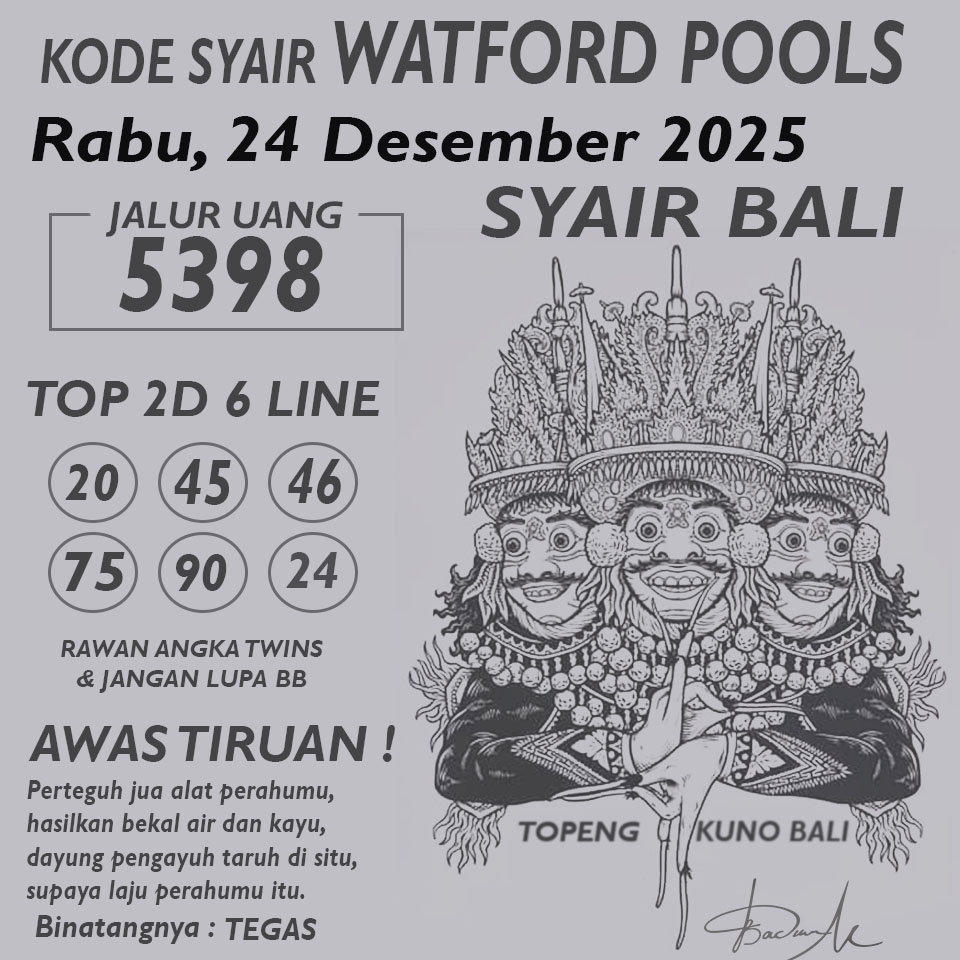 KODE SYAIR WATFORD POOLS
Rabu, 24 Desember 2025
SYAIR BALI
JALUR UANG
5398
TOP 2D 6 LINE
20 45 46
75 90 24
RAWAN ANGKA TWINS
& JANGAN LUPA BB
AWAS TIRUAN !
Perteguh jua alat perahumu,
hasilkan bekal air dan kayu,
dayung pengayuh taruh di situ,
supaya laju perahumu itu.
Binatangnya : TEGAS
TOPENG KUNO BALI